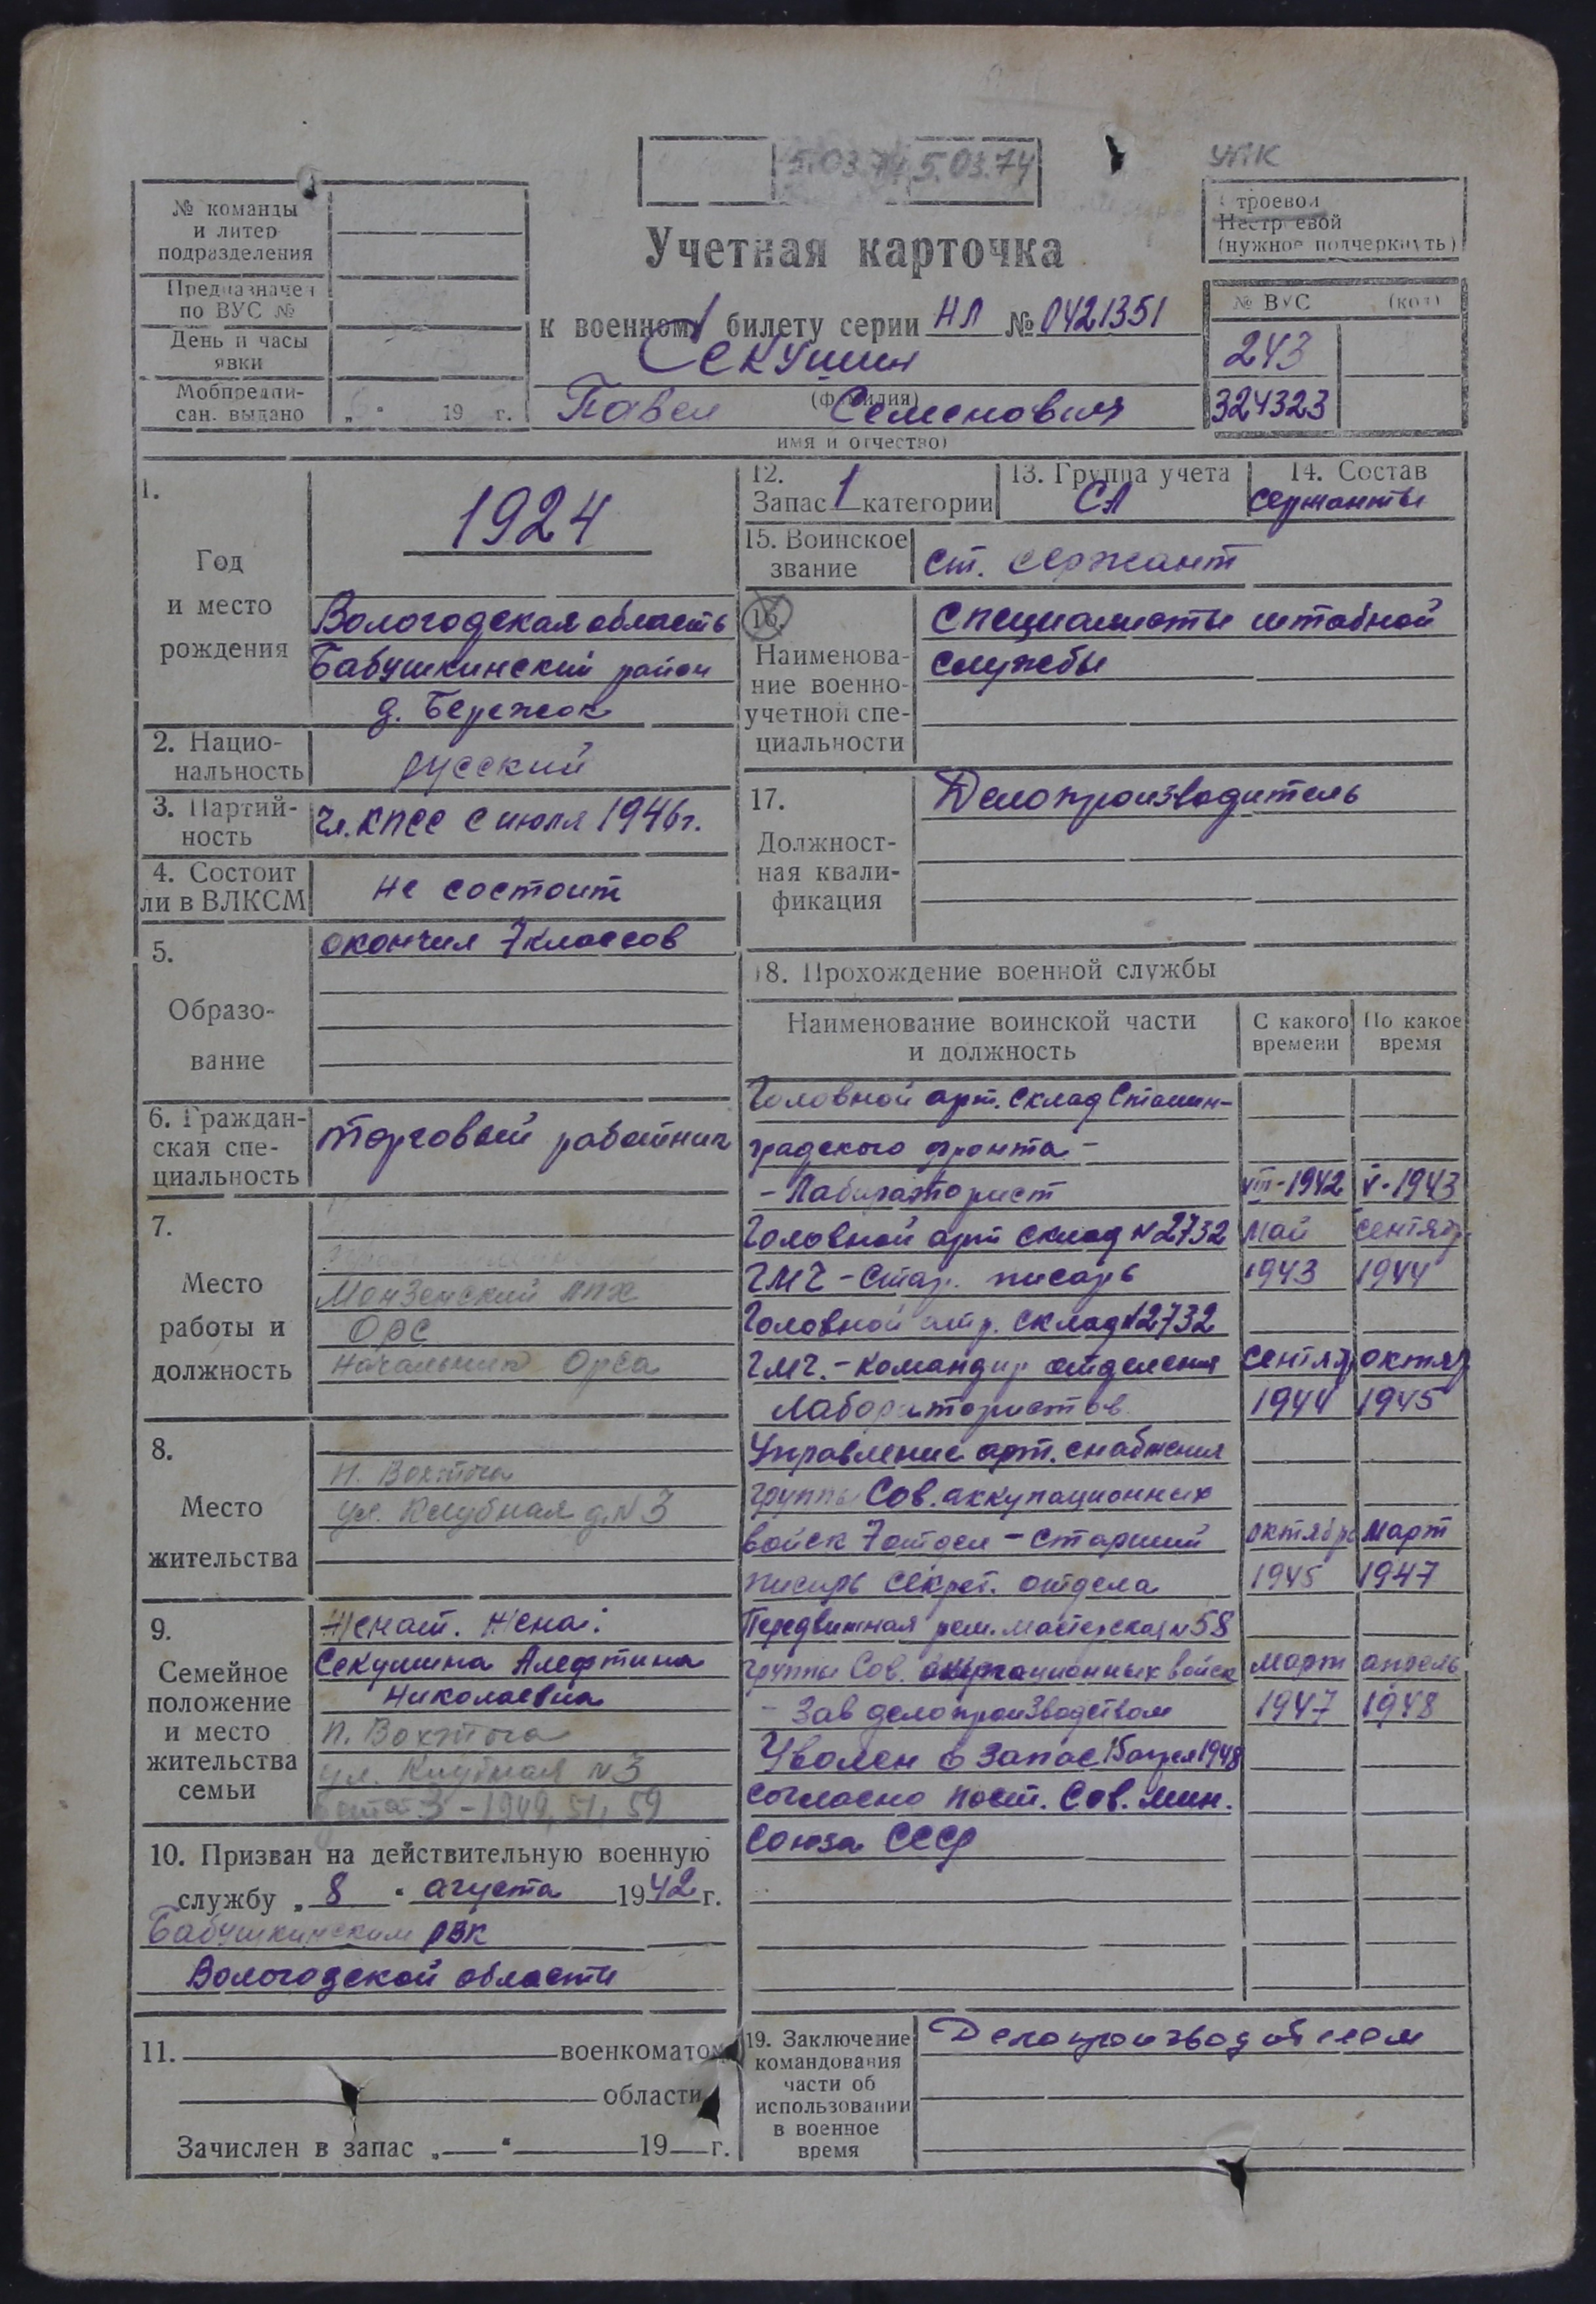 5.03.74 5.03.74
УПК
№ команды
и литер
подразделения
Предназначен
по ВУС №
День и часы
явки
Мобпредпи-
сан. выдано „ " 19 г.
Строевой
Нестроевой
(нужное подчеркнуть)
Учетная карточка
к военному билету серии НЛ № 0421351
Секушин
(фамилия)
Павел Семенович
имя и отчество)
№ ВУС (код)
243
324323
1.
Год
и место
рождения
1924
Вологодская область
Бабушкинский район
д. Бережок
2. Нацио-
нальность
русский
3. Партий-
ность
Чл. КПСС с июля 1946 г.
4. Состоит
ли в ВЛКСМ
не состоит
5.
Образо-
вание
окончил 7 классов
6. Граждан-
ская спе-
циальность
торговый работник
7.
Место
работы и
должность
Монзенский ЛПХ
ОРС
Начальник Орса
8.
Место
жительства
п. Вохтога
ул. Клубная д. N 3
9.
Семейное
положение
и место
жительства
семьи
Женат. Жена:
Секушина Алефтина
Николаевна
п. Вохтога
ул. Клубная N 3
3 - 1949, 51, 59
10. Призван на действительную военную
службу „ 8 " августа 1942 г.
Бабушкинским РВК
Вологодской области
11. военкоматом
области
Зачислен в запас „ " 19 г.
12.
Запас 1 категории
13. Группа учета
СА
14. Состав
сержанты
15. Воинское
звание
ст. сержант
16.
Наименова-
ние военно-
учетной спе-
циальности
Специалисты штабной
службы
17.
Должност-
ная квали-
фикация
Делопроизводитель
18. Прохождение военной службы
Наименование воинской части
и должность
С какого
времени
По какое
время
Головной арт. склад Сталин-
градского фронта -
- Лабораторист VIII-1942 V-1943
Головной арт склад N 2732 май сентяб.
ГМЧ - Стар. писарь 1943 1944
Головной арт. склад N 2732
ГМЧ. - командир отделения сентяб октяб
Лаборатористов 1944 1945
Управление арт. снабжения
группы Сов. аккупационных
войск 7 отдел - старший октябрь март
писарь секрет. отдела 1945 1947
Передвижная рем. мастерская N 58
группы Сов. оккупационных войск март апрель
- Зав делопроизводством 1947 1948
Уволен в запас 15 апреля 1948
согласно пост. Сов. Мин.
Союза ССР
19. Заключение
командования
части об
использовании
в военное
время
Делопроизводителем